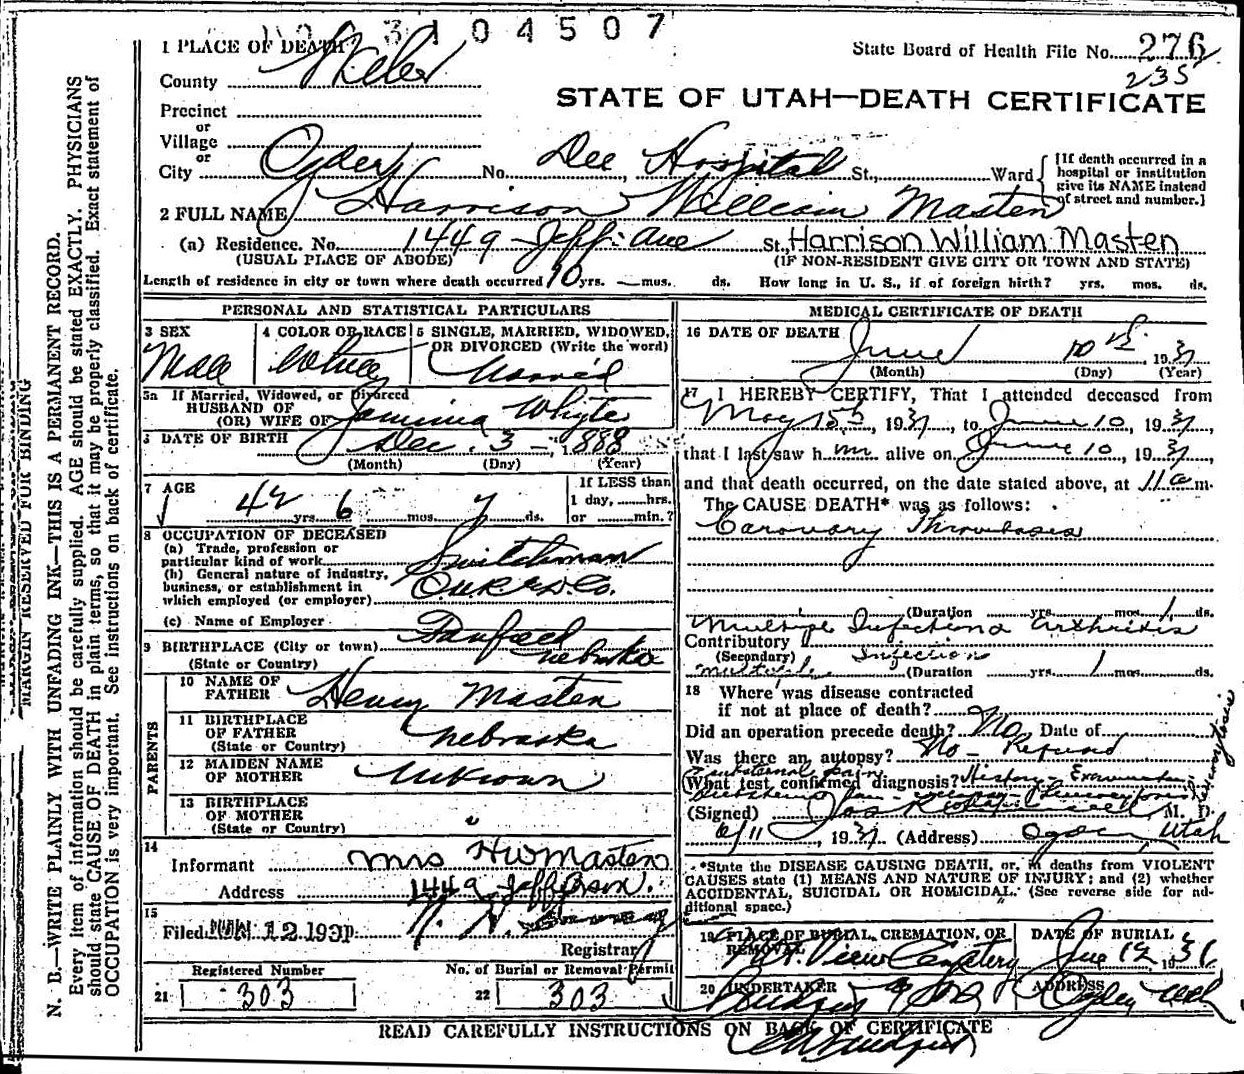 3104507
1 PLACE OF DEATH
State Board of Health File No. 276
235
County Weber
STATE OF UTAH—DEATH CERTIFICATE
Precinct
or
Village
or
City Ogden No. Dee Hospital St., Ward
[If death occurred in a hospital or institution give its NAME instead of street and number.]
2 FULL NAME Harrison William Masten
(a) Residence. No. 1449 Jeff. Ave St. Harrison William Masten
(USUAL PLACE OF ABODE) (IF NON-RESIDENT GIVE CITY OR TOWN AND STATE)
Length of residence in city or town where death occurred 10 yrs. — mos. ds. How long in U. S., if of foreign birth? yrs. mos. ds.
N. B.—WRITE PLAINLY WITH UNFADING INK—THIS IS A PERMANENT RECORD.
Every item of information should be carefully supplied. AGE should be stated EXACTLY. PHYSICIANS
should state CAUSE OF DEATH in plain terms, so that it may be properly classified. Exact statement of
OCCUPATION is very important. See instructions on back of certificate.
MARGIN RESERVED FOR BINDING
PERSONAL AND STATISTICAL PARTICULARS
3 SEX Male
4 COLOR OR RACE White
5 SINGLE, MARRIED, WIDOWED, OR DIVORCED (Write the word) Married
5a If Married, Widowed, or Divorced
HUSBAND OF
(OR) WIFE OF Jamima Whyte
6 DATE OF BIRTH Dec. 3 - 1888
(Month) (Day) (Year)
7 AGE 42 yrs. 6 mos. 7 ds.
If LESS than
1 day, hrs.
or min.?
8 OCCUPATION OF DECEASED
(a) Trade, profession or
particular kind of work Switchman
(b) General nature of industry,
business, or establishment in
which employed (or employer) O.U.R. & D. Co.
(c) Name of Employer
9 BIRTHPLACE (City or town)
(State or Country) Nebraska
PARENTS
10 NAME OF FATHER Henry Masten
11 BIRTHPLACE OF FATHER (State or Country) Nebraska
12 MAIDEN NAME OF MOTHER Unknown
13 BIRTHPLACE OF MOTHER (State or Country)
14
Informant Mrs H W Masten
Address 1449 Jefferson.
15
Filed JUN 12 1931
Registrar
Registered Number
21 303
No. of Burial or Removal Permit
22 303
MEDICAL CERTIFICATE OF DEATH
16 DATE OF DEATH June 10th 1931
(Month) (Day) (Year)
17 I HEREBY CERTIFY, That I attended deceased from
May 15th, 1931, to June 10, 1931,
that I last saw him alive on June 10, 1931,
and that death occurred, on the date stated above, at 11 a m.
The CAUSE DEATH* was as follows:
Coronary Thrombosis
(Duration yrs. mos. 1 ds.
Multiple Infectious Arthritis
Contributory
(Secondary) Infection
(Duration yrs. 1 mos. ds.
18 Where was disease contracted
if not at place of death?
Did an operation precede death? No Date of
Was there an autopsy? No - Refused
What test confirmed diagnosis? History - Examination
(Signed) M. D.
6/11, 1931 (Address) Ogden Utah
*State the DISEASE CAUSING DEATH, or, in deaths from VIOLENT
CAUSES state (1) MEANS AND NATURE OF INJURY; and (2) whether
ACCIDENTAL, SUICIDAL OR HOMICIDAL. (See reverse side for additional space.)
19 PLACE OF BURIAL, CREMATION, OR REMOVAL Mt. View Cemetery
DATE OF BURIAL June 12 1931
20 UNDERTAKER & Sons
ADDRESS Ogden Utah
READ CAREFULLY INSTRUCTIONS ON BACK OF CERTIFICATE